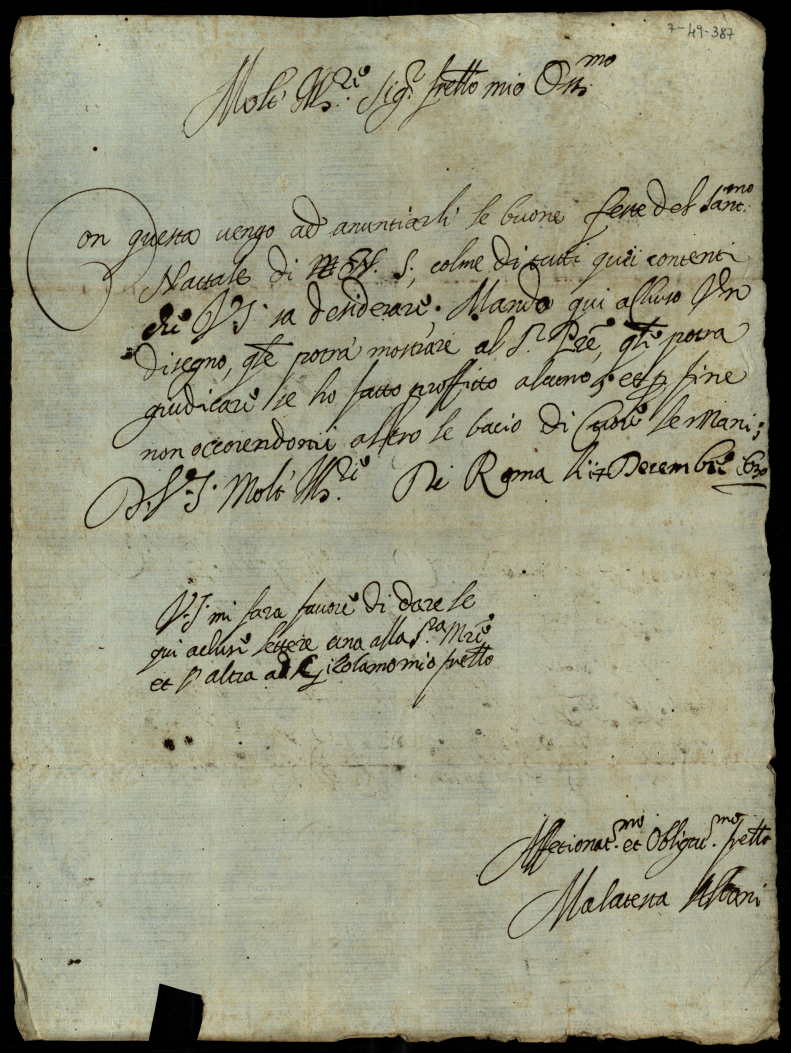 7-49-387
Molt' Ill.re Sig.r frello mio Oss.mo
Con questa vengo ad anuntiarli le buone feste del Sant.mo
Nattale di N. S., colme di tutti quei contenti
che V.S. sa desiderare. Mando qui alluso Un
disegno, qle potrà mostrare al S.r Pre, qle potra
giudicare se ho fatto proffitto alcuno, et p fine
non occorendomi altro le bacio di Cuore le Mani;
D. V.S. Molt' Ill.re Di Roma li 17 Decembre 630
V.S. mi fara favore di dare le
qui acluse lettere una alla S.ra Mre
et l'altra ad Girolamo mio frello
Affetionat.mo et Obligat.mo frello
Malatesta Albani